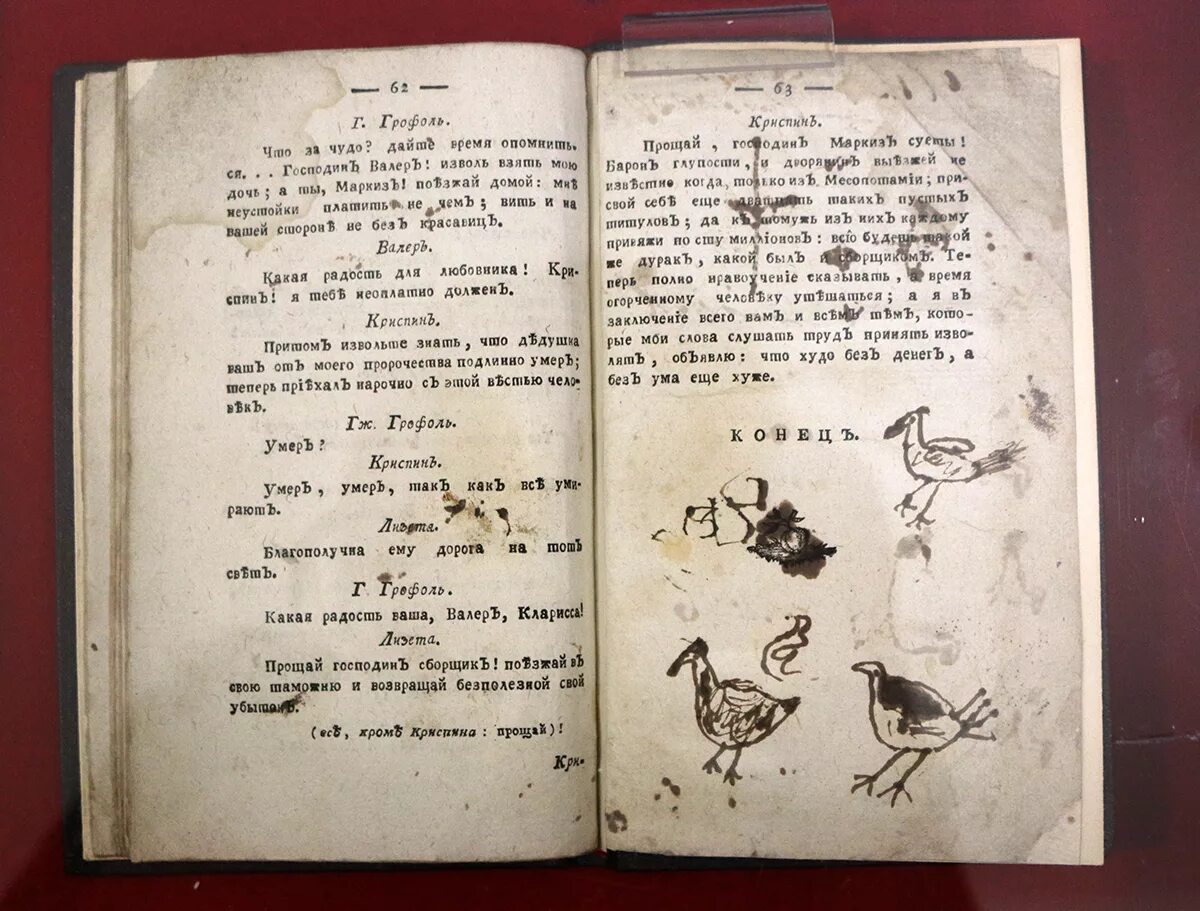 — 62 —
Г. Грофоль.
Что за чудо? дайте время опомнить-
ся... Господинъ Валеръ! изволь взять мою
дочь; а ты, Маркизъ! поѣзжай домой: мнѣ
неустойки платить не чемъ; вить и на
вашей сторонѣ не безъ красавицъ.
Валеръ.
Какая радость для любовника! Кри-
спинъ! я тебѣ неоплатно долженъ.
Криспинъ.
Притомъ извольте знать, что дѣдушка
вашъ отъ моего пророчества подлинно умеръ;
теперь пріѣхалъ нарочно съ этой вѣстью чело-
вѣкъ.
Гж. Грофоль.
Умеръ?
Криспинъ.
Умеръ, умеръ, такъ какъ всѣ уми-
раютъ.
Лизета.
Благополучна ему дорога на тотъ
свѣтъ.
Г. Грофоль.
Какая радость ваша, Валеръ, Кларисса!
Лизета.
Прощай господинъ сборщикъ! поѣзжай въ
свою таможню и возвращай безполезной свой
убытокъ.
(всѣ, кромѣ Криспина: прощай)!
Кри-
— 63 —
Криспинъ.
Прощай, господинъ Маркизъ суеты!
Баронъ глупости, и дворянинъ выѣзжей не
извѣстно когда, только изъ Месопотаміи; при-
свой себѣ еще двадцать такихъ пустыхъ
титуловъ; да къ томужъ изъ нихъ каждому
привяжи по сту милліоновъ: всіо будешь такой
же дуракъ, какой былъ и сборщикомъ. Те-
перь полно нравоученіе сказывать, а время
огорченному человѣку утѣшаться; а я въ
заключеніе всего вамъ и всѣмъ тѣмъ, кото-
рые мои слова слушать трудъ принять изво-
лятъ, объявлю: что худо безъ денегъ, а
безъ ума еще хуже.
КОНЕЦЪ.